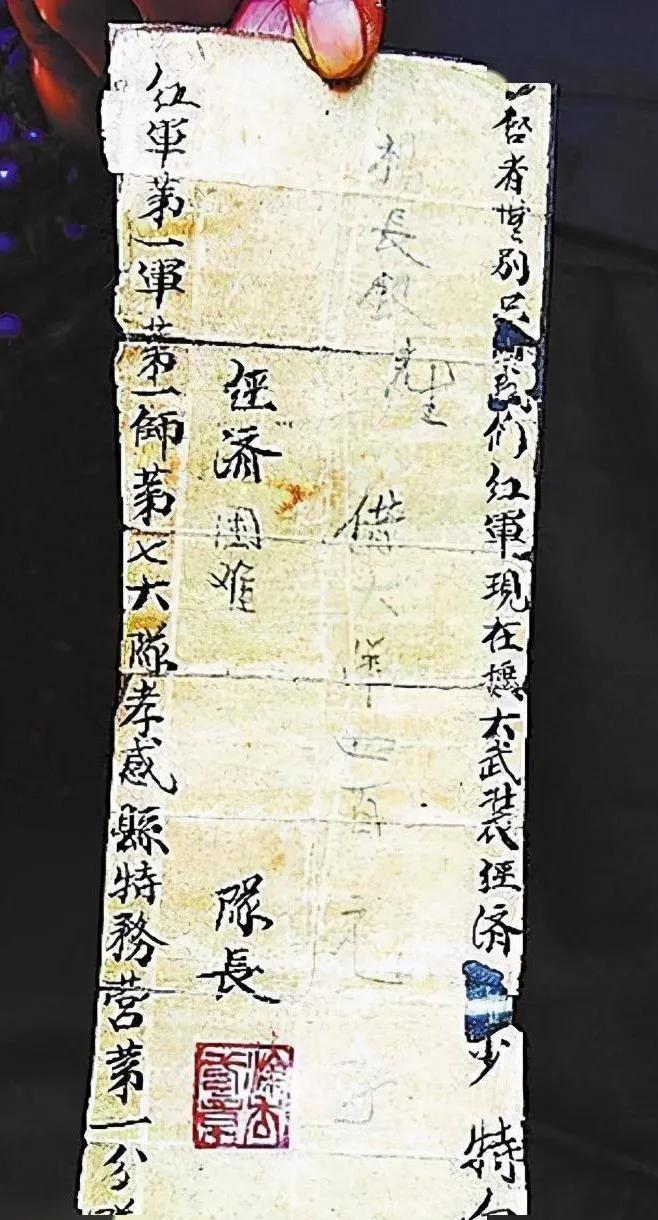 啓者無別只我们红軍現在擴大武装經済少特向
楊長銀先生 借大洋四百元
經済困难 隊長
红軍第一軍第一師第七大隊孝感縣特務营第一分隊